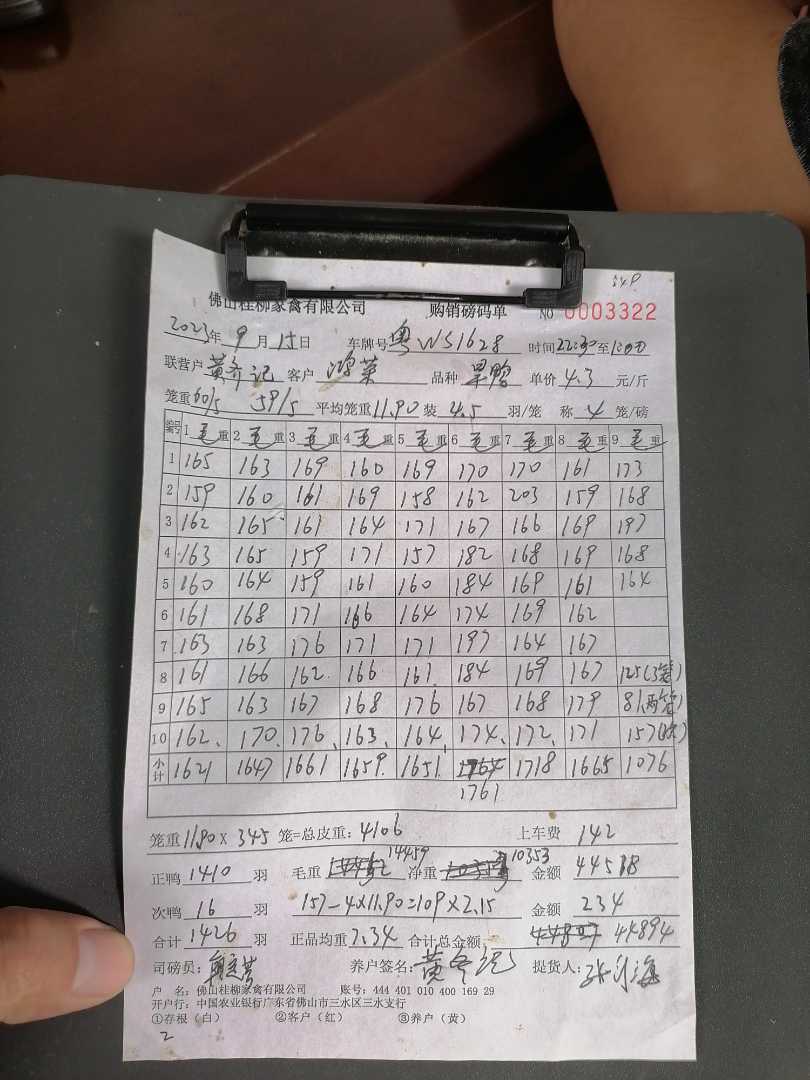 佛山桂柳家禽有限公司 购销磅码单 NO 0003322
2023年 9月 15日 车牌号 粤WS1628 时间22:30至1:00
联营户 黄齐记 客户 鸿荣 品种 单价 4.3 元/斤
笼重60/5 59/5 平均笼重11.90 装 4.5 羽/笼 称 4 笼/磅
编号 1毛重 2毛重 3毛重 4毛重 5毛重 6毛重 7毛重 8毛重 9毛重
1 165 163 169 160 169 170 170 161 173
2 159 160 161 169 158 162 203 159 168
3 162 165 161 164 171 167 166 169 197
4 163 165 159 171 157 182 168 169 168
5 160 164 159 161 160 184 169 161 164
6 161 168 171 166 164 174 169 162
7 163 163 176 171 171 197 164 167
8 161 166 162 166 161 184 169 167 125(3笼)
9 165 163 167 168 176 167 168 179 81(两笼)
10 162 170 176 163 164 174 172 171 157
小计 1621 1647 1661 1659 1651 1764 1718 1665 1076
1761
笼重 11.90 X 345 笼=总皮重: 4106 上车费 142
正鸭 1410 羽 毛重 14459 净重 10353 金额 44518
次鸭 16 羽 157-4×11.90=109×2.15 金额 234
合计 1426 羽 正品均重 7.34 合计总金额 44894
司磅员: 养户签名: 提货人:
户 名: 佛山桂柳家禽有限公司 账号: 444 401 010 400 169 29
开户行: 中国农业银行广东省佛山市三水区三水支行
①存根(白) ②客户(红) ③养户(黄)
2